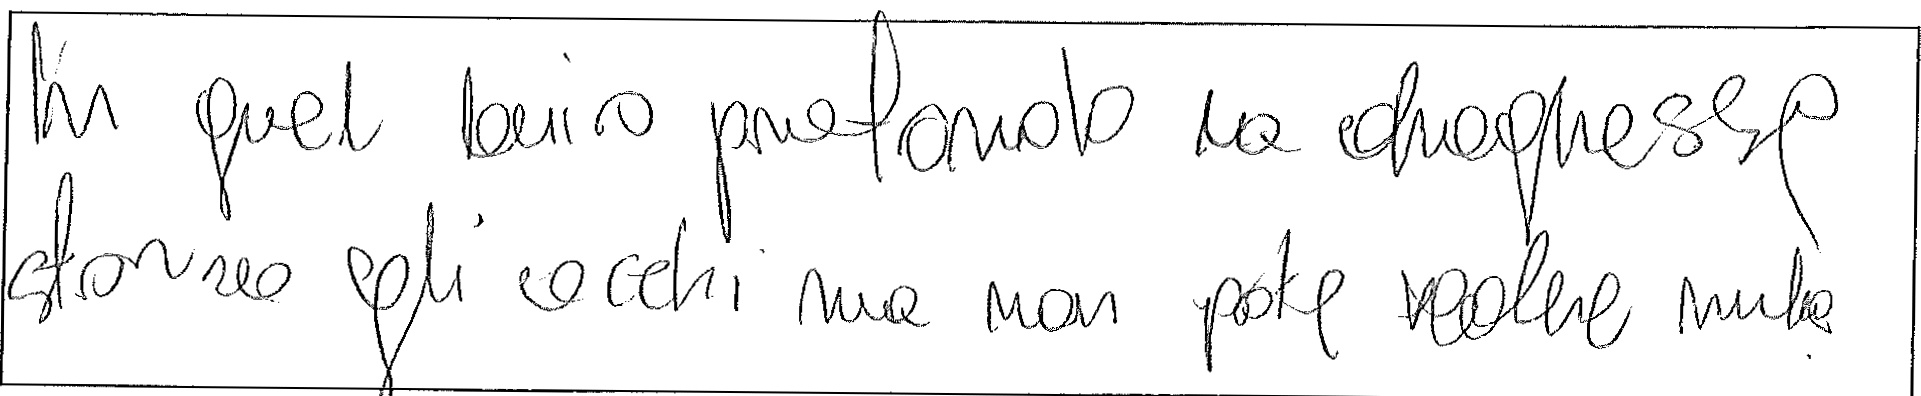 In quel buio profondo la draghessa
sforzo gli occhi ma non pote vedere nulla